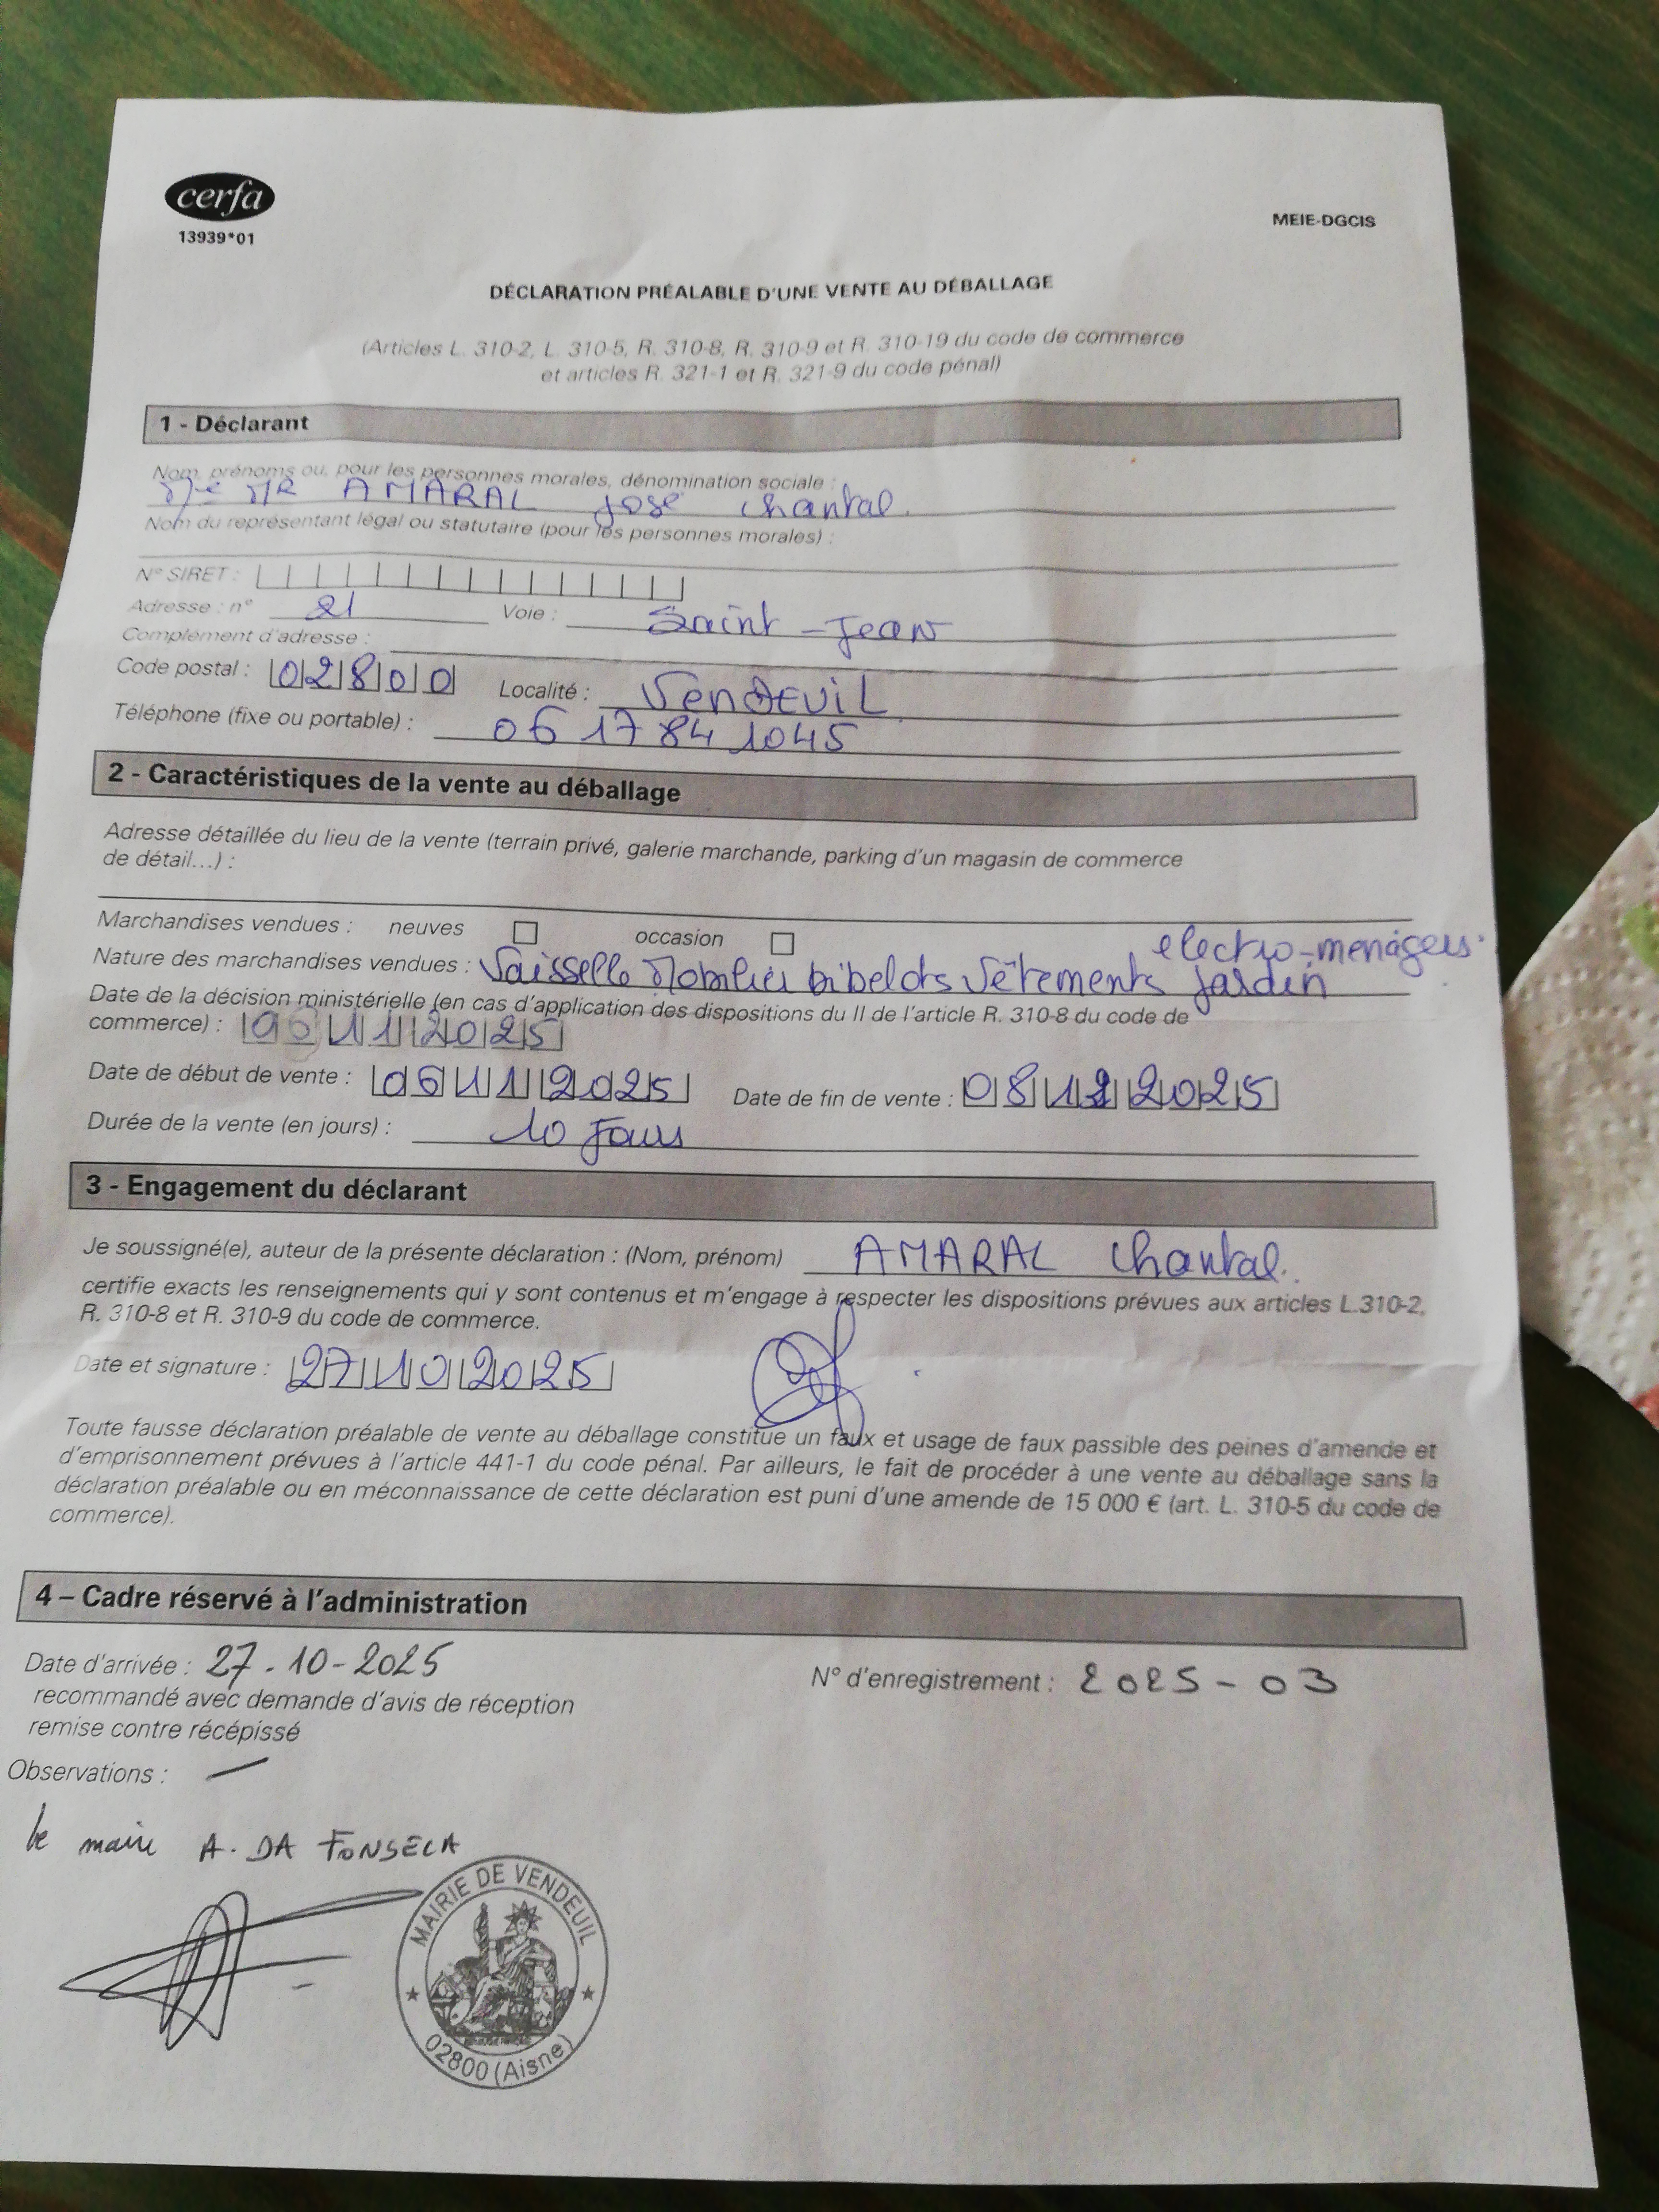 cerfa
13939*01
MEIE-DGCIS
DÉCLARATION PRÉALABLE D'UNE VENTE AU DÉBALLAGE
(Articles L. 310-2, L. 310-5, R. 310-8, R. 310-9 et R. 310-19 du code de commerce
et articles R. 321-1 et R. 321-9 du code pénal)
1 - Déclarant
Nom, prénoms ou, pour les personnes morales, dénomination sociale :
AMARAL José Chantal
Nom du représentant légal ou statutaire (pour les personnes morales) :
N° SIRET :
Adresse : n° 21 Voie : Saint-Jean
Complément d'adresse :
Code postal : 02800 Localité : VendEuiL
Téléphone (fixe ou portable) : 06 17 84 1045
2 - Caractéristiques de la vente au déballage
Adresse détaillée du lieu de la vente (terrain privé, galerie marchande, parking d'un magasin de commerce
de détail...) :
Marchandises vendues : neuves occasion
electro-menagers
Nature des marchandises vendues : Vaisselle Mobilier bibelots Vêtements jardin
Date de la décision ministérielle (en cas d'application des dispositions du II de l'article R. 310-8 du code de
commerce) : 06 11 2025
Date de début de vente : 06 11 2025 Date de fin de vente : 08 12 2025
Durée de la vente (en jours) : 10 Jours
3 - Engagement du déclarant
Je soussigné(e), auteur de la présente déclaration : (Nom, prénom) AMARAL Chantal
certifie exacts les renseignements qui y sont contenus et m'engage à respecter les dispositions prévues aux articles L.310-2,
R. 310-8 et R. 310-9 du code de commerce.
Date et signature : 27 10 2025
Toute fausse déclaration préalable de vente au déballage constitue un faux et usage de faux passible des peines d'amende et
d'emprisonnement prévues à l'article 441-1 du code pénal. Par ailleurs, le fait de procéder à une vente au déballage sans la
déclaration préalable ou en méconnaissance de cette déclaration est puni d'une amende de 15 000 € (art. L. 310-5 du code de
commerce).
4 – Cadre réservé à l'administration
Date d'arrivée : 27-10-2025 N° d'enregistrement : 2025-03
recommandé avec demande d'avis de réception
remise contre récépissé
Observations : —
le maire A. DA FONSECA
MAIRIE DE VENDEUIL
02800 (Aisne)